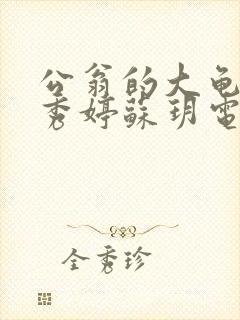 公翁的大龟
秀婷蘇玥電
全秀珍